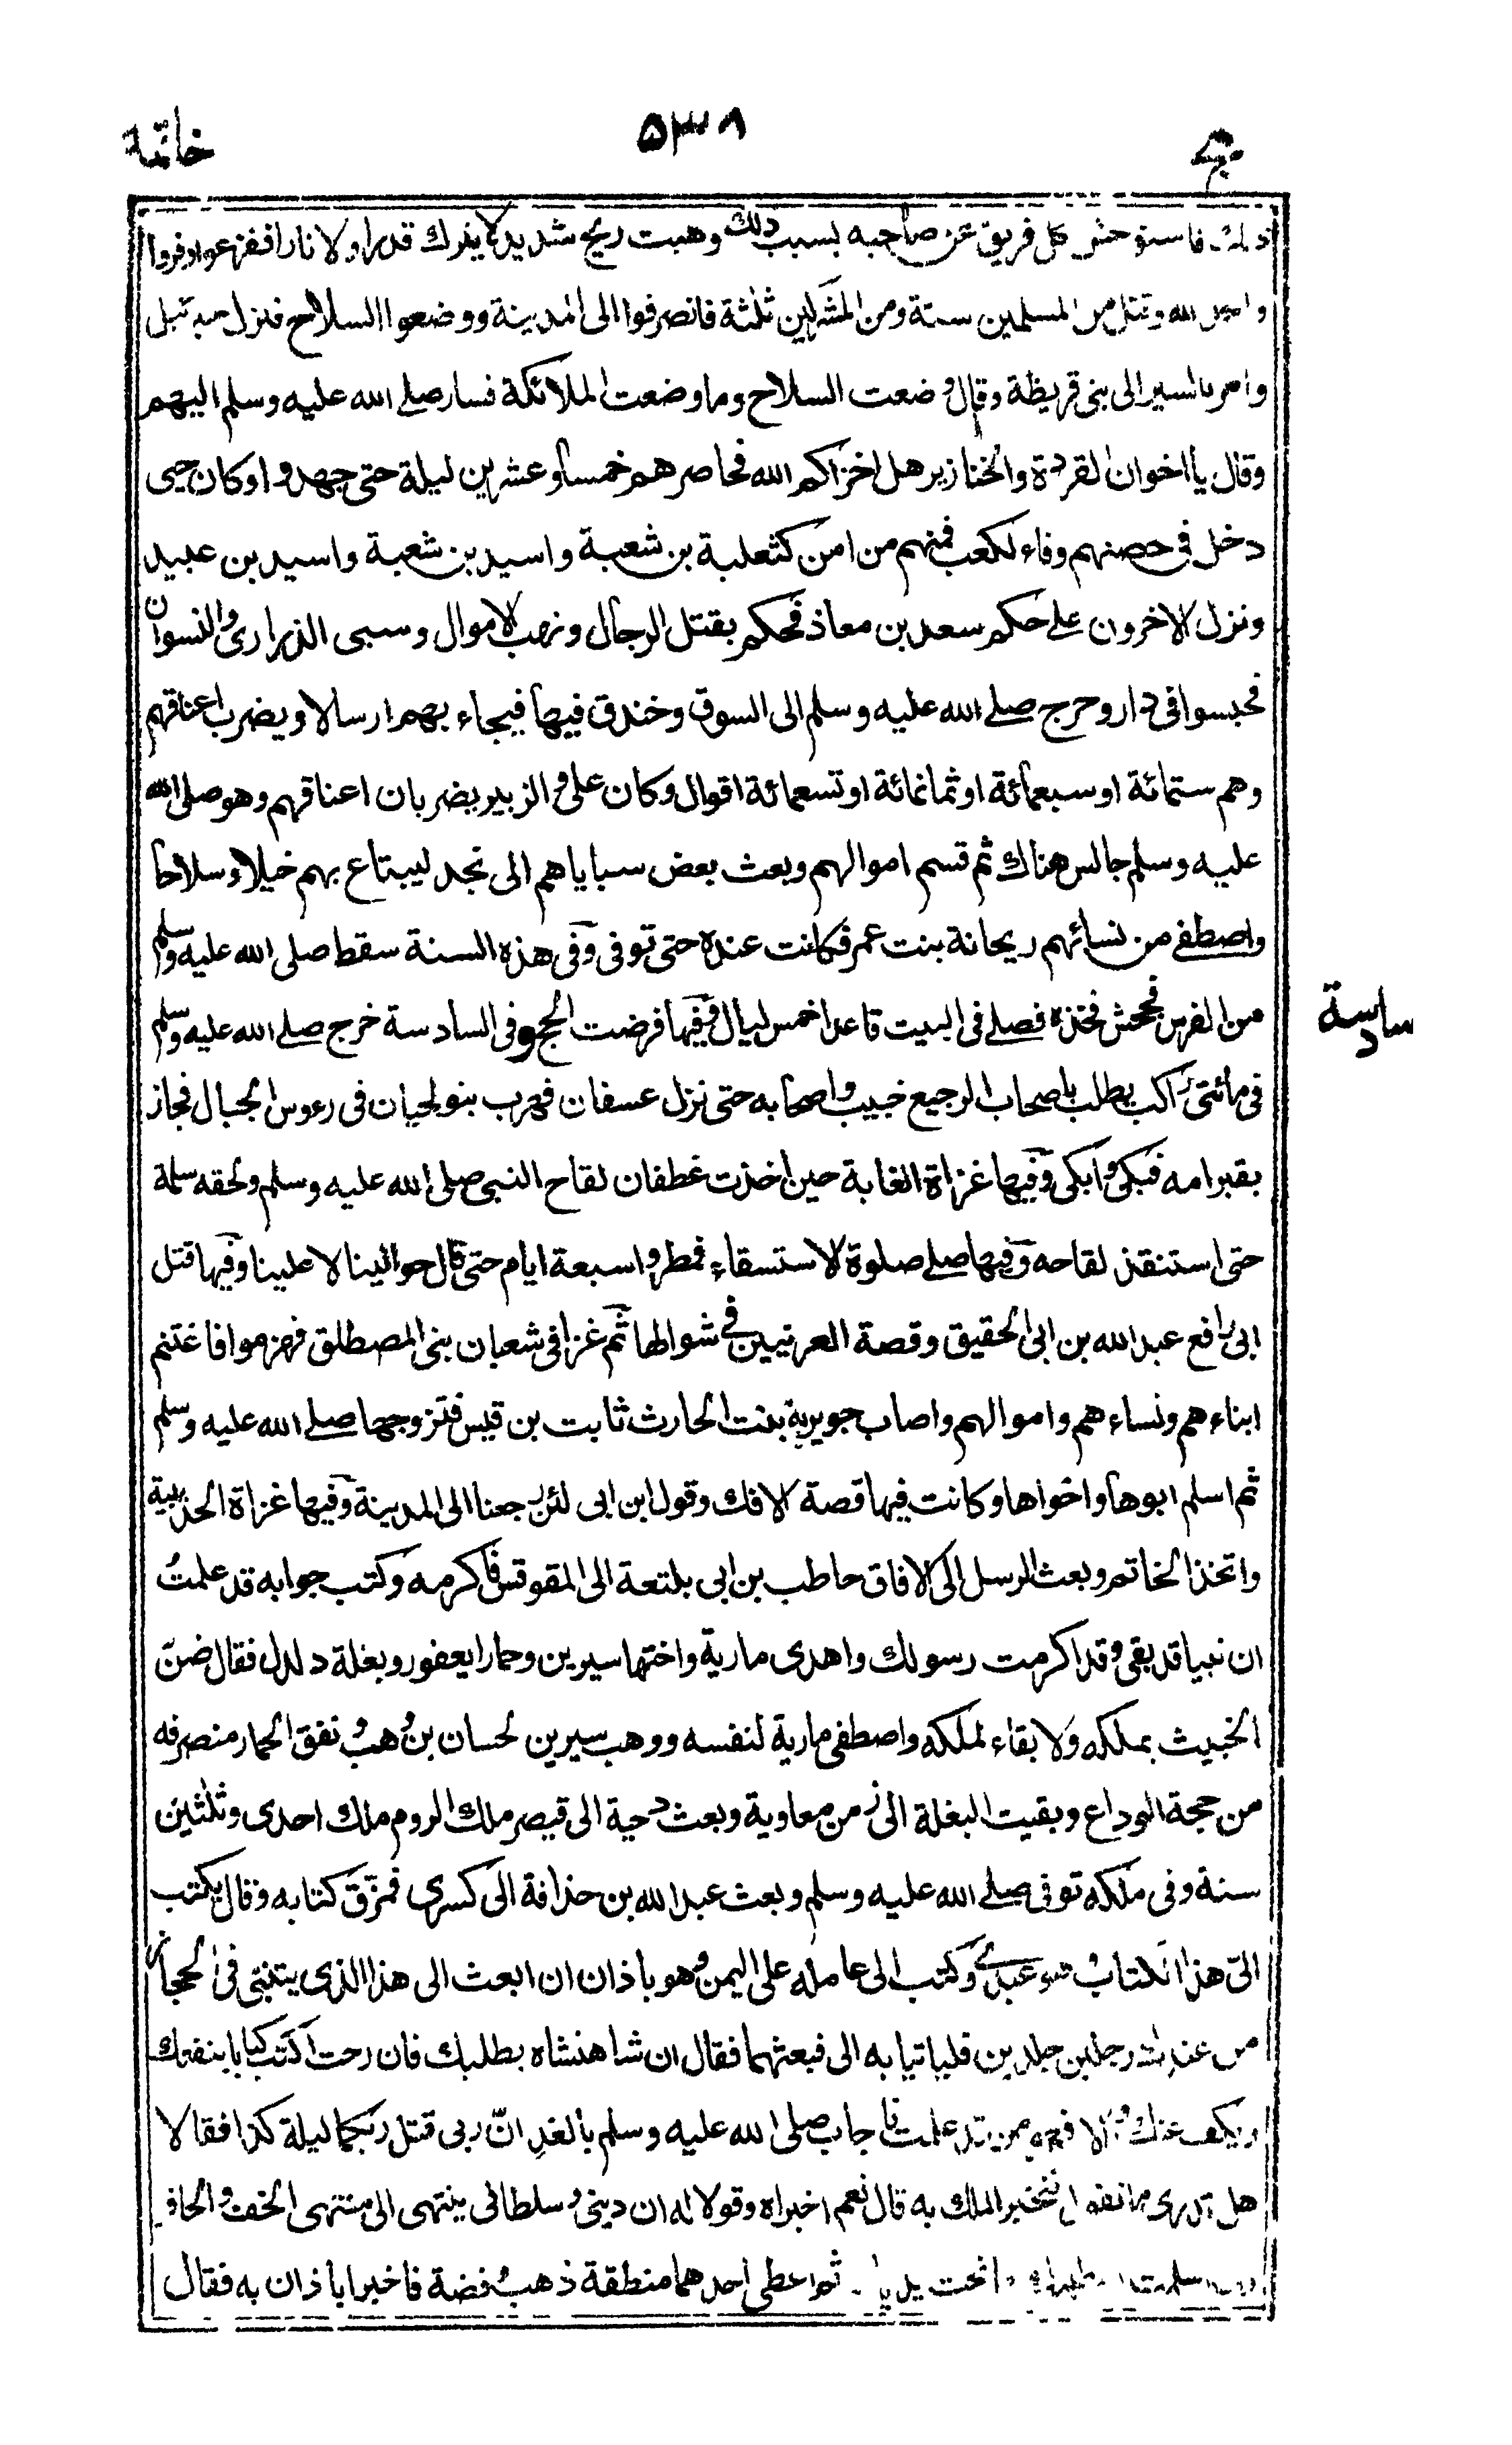 خاتمة
۵۳۸
ذلك فاستوحش كل فريق عن صاحبه بسبب ذلك وهبت ريح شديد لا يترك قدرا ولا نارا ففزعوا وفروا
وقتل من المسلمين ستة ومن المشركين ثلثة فانصرفوا الى المدينة ووضعوا السلاح فنزل
وامر بالسير الى بنى قريظة وقال وضعت السلاح وما وضعت الملائكة فسار صلے الله عليه وسلم اليهم
وقال يا اخوان القردة والخنازير هل اخزاكم الله فحاصرهم خمسا وعشرين ليلة حتى جهدوا وكان حيى
دخل فى حصنهم وفاء لكعب فمنهم من امن كثعلبة بن شعبة واسيد بن شعبة واسيد بن عبيد
ونزل الاخرون على حكم سعد بن معاذ فحكم بقتل الرجال ونهب الاموال وسبى الذرارى والنسوان
فحبسوا فى دار وخرج صلے الله عليه وسلم الى السوق وخندق فيها فيجاء بهم ارسالا ويضرب اعناقهم
وهم ستمائة او سبعمائة او ثمانمائة او تسعمائة اقوال وكان على والزبير يضربان اعناقهم وهو صلى الله
عليه وسلم جالس هناك ثم قسم اموالهم وبعث بعض سباياهم الى نجد ليبتاع بهم خيلا وسلاحا
واصطفے من نسائهم ريحانة بنت عمر فكانت عنده حتى توفى وفى هذه السنة سقط صلى الله عليه وسلم
من الفرس فجحش فخذه فصلے فى البيت قاعدا خمس ليال وفيها فرضت الحج وفى السادسة خرج صلے الله عليه وسلم
سادسة
فى مائتى راكب يطلب باصحاب الرجيع خبيب واصحابه حتى نزل عسفان فهرب بنو لحيان فى رءوس الجبال فجاز
بقبر امه فبكى وابكى وفيها غزاة الغابة حين اخذت غطفان لقاح النبى صلى الله عليه وسلم ولحقه سلمة
حتى استنقذ لقاحه وفيها صلے صلوة الاستسقاء فمطروا سبعة ايام حتى قال حوالينا لا علينا وفيها قتل
ابى رافع عبد الله بن ابى الحقيق وقصة العرنيين فے شوالها ثم غزا فى شعبان بنى المصطلق فهزموا فاغتنم
ابناءهم ونساءهم واموالهم واصاب جويرية بنت الحارث ثابت بن قيس فتزوجها صلے الله عليه وسلم
ثم اسلم ابوها واخواها وكانت فيها قصة الافك وقول ابن ابى لئن رجعنا الى المدينة وفيها غزاة الحديبية
واتخذ الخاتم وبعث الرسل الى الافاق حاطب بن ابى بلتعة الى المقوقس فاكرمه وكتب جوابه قد علمتُ
ان نبيا قد بقى وقد اكرمت رسولك واهدى مارية واختها سيرين وحمارا يعفور وبغلة دلدل فقال ضنّ
الخبيث بملكه ولا بقاء لملكه واصطفى مارية لنفسه ووهب سيرين لحسان بن وهب ونفق الحمار منصرفه
من حجة الوداع وبقيت البغلة الى زمن معاوية وبعث دحية الى قيصر ملك الروم ملك احدى وثلثين
سنة وفى ملكه توفى صلے الله عليه وسلم وبعث عبد الله بن حذافة الى كسرى فمزّق كتابه وقال يكتب
الىّ هذا الكتاب وهو عبدے وكتب الى عامله على اليمن وهو باذان ان ابعث الى هذا الذى يتنبى فى الحجاز
من عندك رجلين جلدين فلياتيا به الى فبعثهما فقال ان شاهنشاه يطلبك فان رحت اكتب كتابا ينفعك
ويكف عنك والا فهو من قد علمت فاجاب صلى الله عليه وسلم بالغدِ انّ ربى قتل ربكما ليلة كذا فقالا
هل تدرى ما تقول نخبر الملك به قال نعم اخبراه وقولا له ان دينى وسلطانى ينتهى الى منتهى الخف والحافر
اسلمت تحت ثم اعطى احدهما منطقة ذهب وفضة فاخبرا باذان به فقال